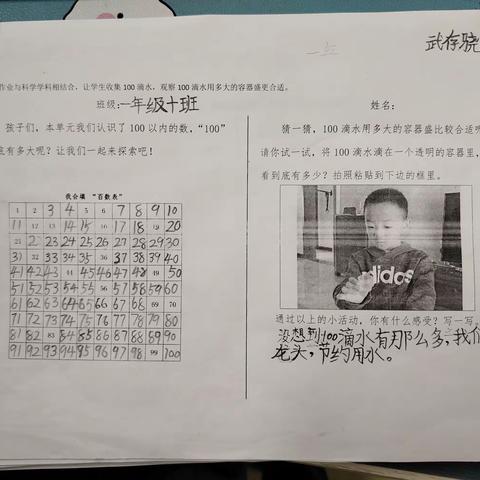 武存骁
作业与科学学科相结合，让学生收集100滴水，观察100滴水用多大的容器盛更合适。
班级:一年级十班
姓名:
孩子们，本单元我们认识了100以内的数，“100”
底有多大呢？让我们一起来探索吧！
我会填 “百数表”
1 2 3 4 5 6 7 8 9 10
11 12 13 14 15 16 17 18 19 20
21 2 23 24 25 26 27 28 29 30
31 32 33 34 35 36 37 38 39 40
41 42 43 44 45 46 47 48 49 50
51 52 53 54 55 56 57 58 59 60
61 62 63 64 65 66 67 68 69 70
71 72 73 74 75 76 77 78 79 80
81 82 83 84 85 86 87 88 89 90
91 92 93 94 95 96 97 98 99 100
猜一猜，100滴水用多大的容器盛比较合适
请你试一试，将100滴水滴在一个透明的容器里，
看到底有多少？拍照粘贴到下边的框里。
adidas
通过以上的小活动，你有什么感受？写一写
没想到100滴水有那么多，我们
龙头，节约用水。